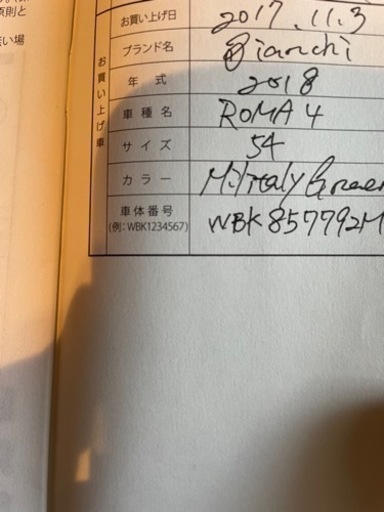 原則と
お買い上げ日 2017.11.3
ブランド名 Bianchi
年式 2018
車種名 ROMA 4
サイズ 54
カラー
車体番号
(例：WBK1234567) WBK857792M
お買い上げ車